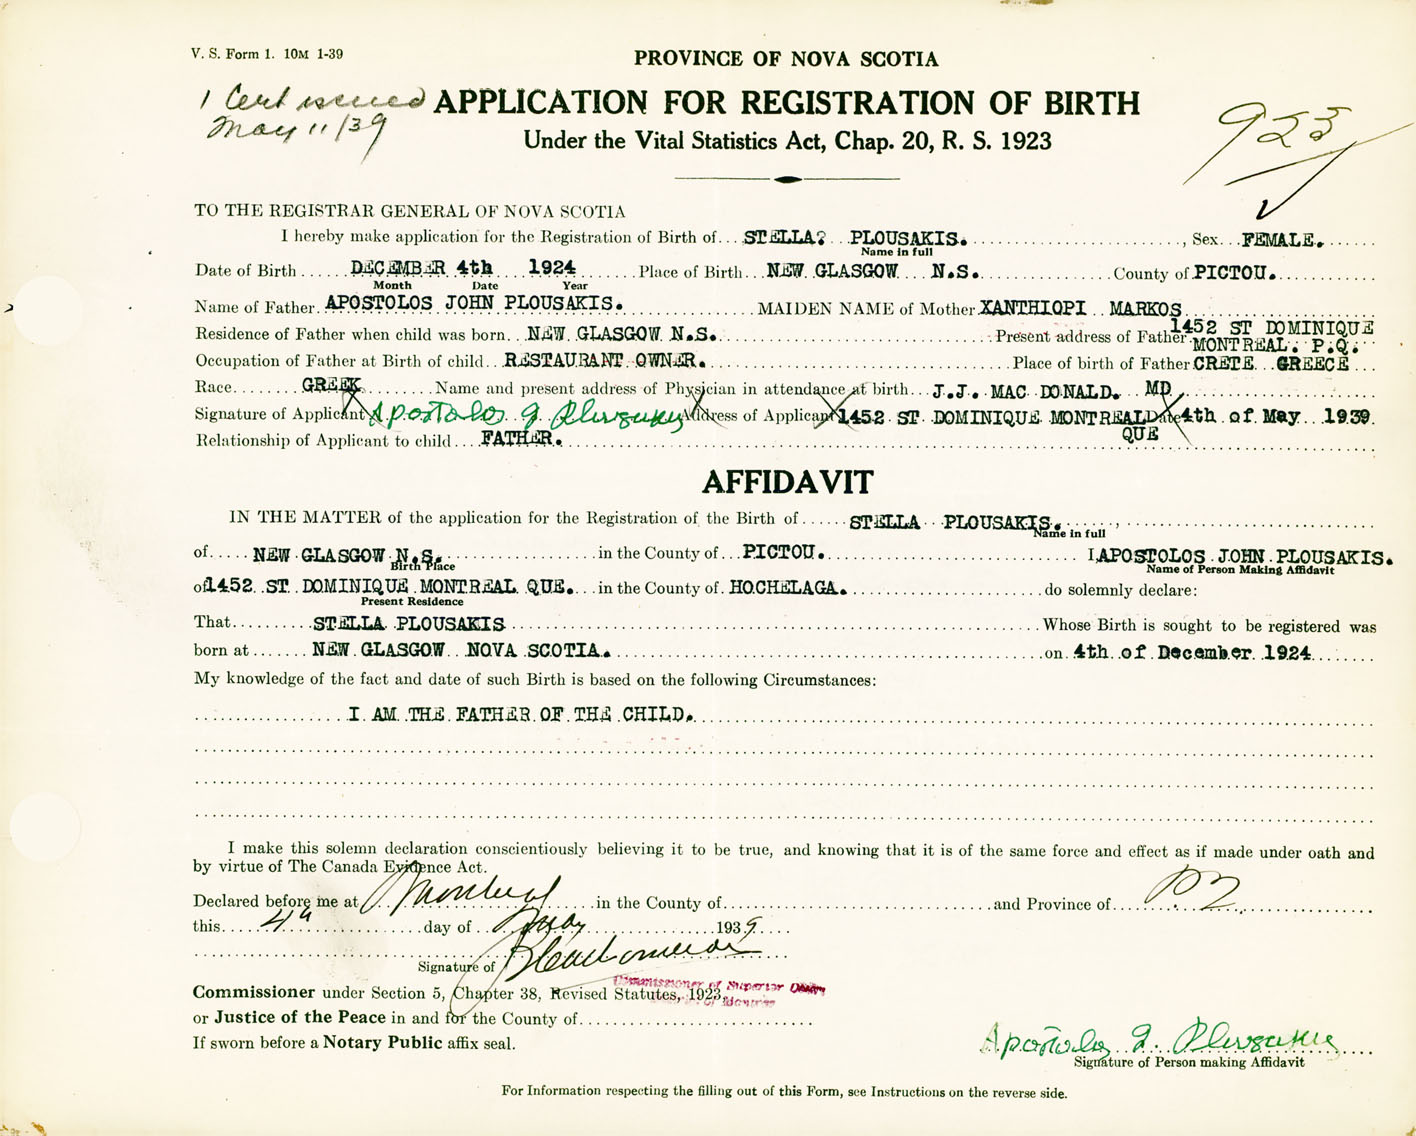 V. S. Form 1. 10M 1-39
PROVINCE OF NOVA SCOTIA
1 Cert issued
May 11/39
APPLICATION FOR REGISTRATION OF BIRTH
Under the Vital Statistics Act, Chap. 20, R. S. 1923
923
TO THE REGISTRAR GENERAL OF NOVA SCOTIA
I hereby make application for the Registration of Birth of STELLA? PLOUSAKIS. , Sex FEMALE.
Name in full
Date of Birth DECEMBER 4th 1924 Place of Birth NEW GLASGOW N.S. County of PICTOU.
Month Date Year
Name of Father APOSTOLOS JOHN PLOUSAKIS. MAIDEN NAME of Mother XANTHIOPI MARKOS
Residence of Father when child was born NEW GLASGOW N.S. Present address of Father 1452 ST DOMINIQUE
MONTREAL. P.Q.
Occupation of Father at Birth of child RESTAURANT OWNER. Place of birth of Father CRETE GREECE
Race GREEK Name and present address of Physician in attendance at birth J.J. MAC DONALD. MD
Signature of Applicant Apostolos J Plousakis Address of Applicant 1452 ST. DOMINIQUE MONTREAL Date 4th of May 1939
QUE
Relationship of Applicant to child FATHER.
AFFIDAVIT
IN THE MATTER of the application for the Registration of the Birth of STELLA PLOUSAKIS. ,
Name in full
of NEW GLASGOW N.S. in the County of PICTOU. I, APOSTOLOS JOHN PLOUSAKIS.
Birth Place Name of Person Making Affidavit
of 1452 ST. DOMINIQUE MONTREAL QUE. in the County of HOCHELAGA. do solemnly declare:
Present Residence
That STELLA PLOUSAKIS Whose Birth is sought to be registered was
born at NEW GLASGOW NOVA SCOTIA. on 4th of December 1924
My knowledge of the fact and date of such Birth is based on the following Circumstances:
I AM THE FATHER OF THE CHILD.
I make this solemn declaration conscientiously believing it to be true, and knowing that it is of the same force and effect as if made under oath and
by virtue of The Canada Evidence Act.
Declared before me at Montreal in the County of and Province of P.Q.
this 4th day of May 1939
Signature of
Commissioner of Superior Court
Commissioner under Section 5, Chapter 38, Revised Statutes, 1923,
of Montreal
or Justice of the Peace in and for the County of
If sworn before a Notary Public affix seal.
Apostolos J. Plousakis
Signature of Person making Affidavit
For Information respecting the filling out of this Form, see Instructions on the reverse side.